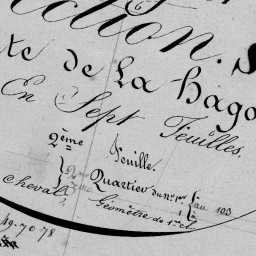 ction. S
te de La hago
En Sept Feuilles.
2ème Feuille.
Quartier du n° 1er au 103
Géomètre de 1re cl
Cheval
19.70 78